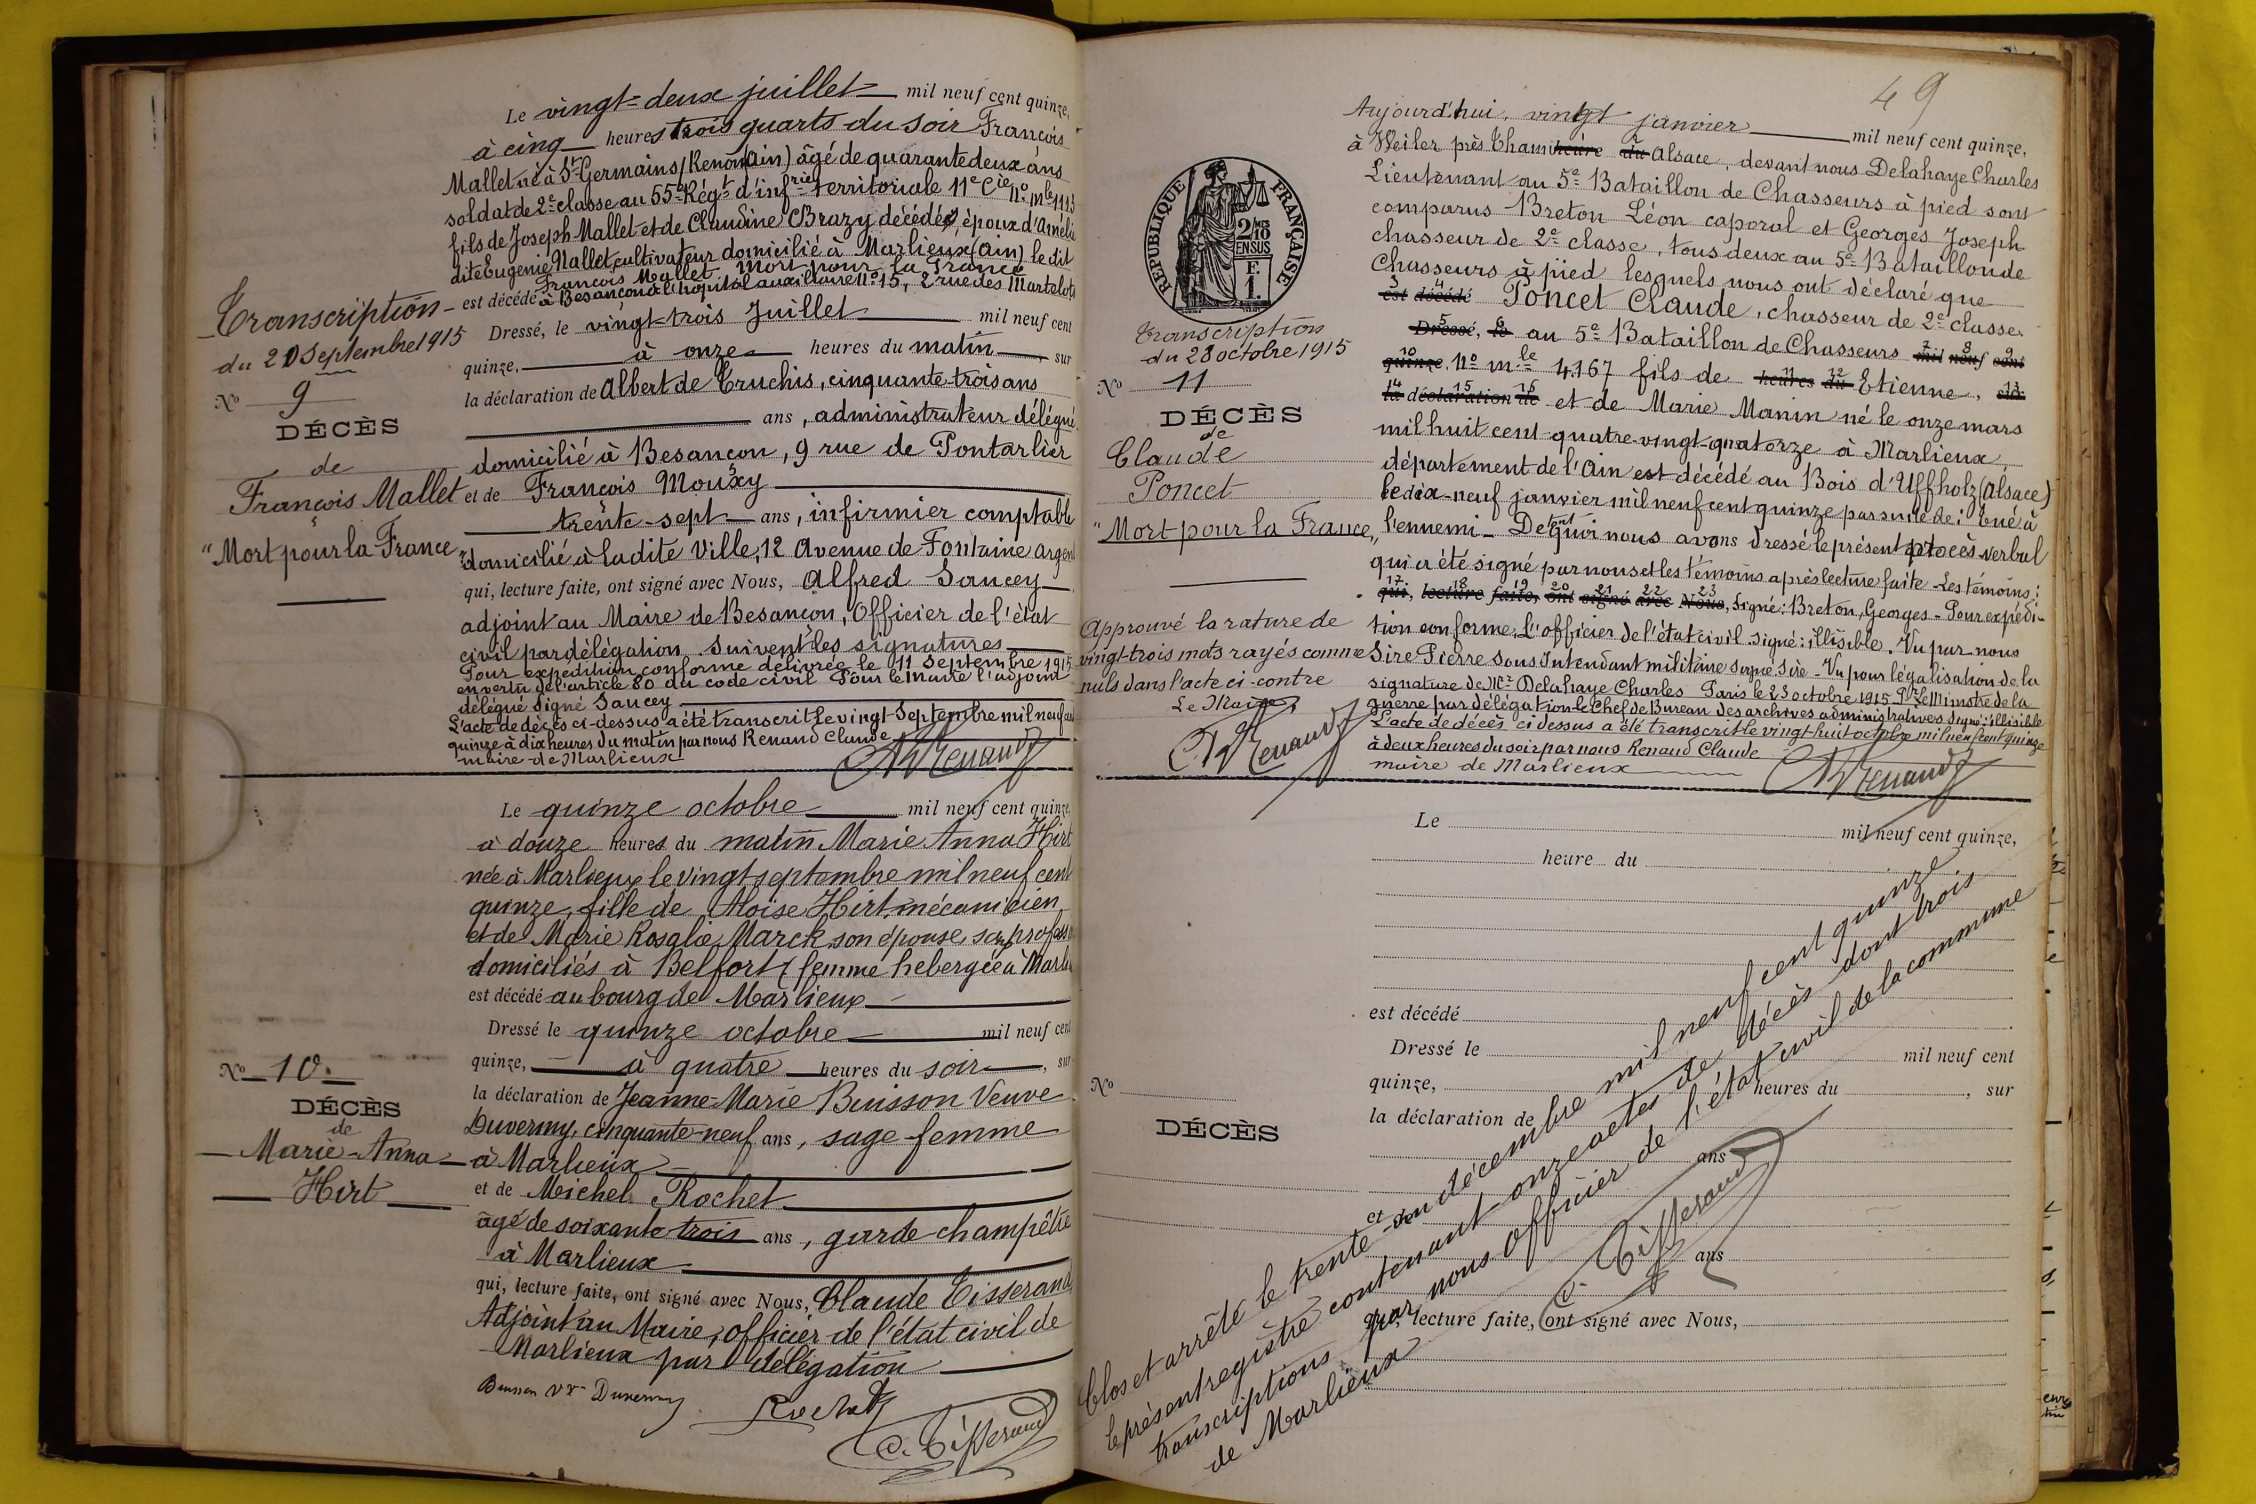 Le vingt-deux juillet mil neuf cent quinze,
à cinq heures trois quarts du soir François
Mallet né à St Germains/Renon (Ain) âgé de quarante deux ans
soldat de 2e classe au 55e Régt d'infrie territoriale 11e Cie No mle 1113
fils de Joseph Mallet et de Claudine Brazy décédés, époux d'Amélie
dite Eugenie Nallet, cultivateur domicilié à Marlieux (Ain) le dit
François Mallet Mort pour la France
est décédé à Besançon à l'hôpital auxillaire No 15, 2 rue des Martelots
Transcription
du 20 Septembre 1915
No 9
DÉCÈS
de
François Mallet
"Mort pour la France"
Dressé, le vingt-trois Juillet mil neuf cent
quinze, à onze heures du matin, sur
la déclaration de Albert de Truchis, cinquante-trois ans
ans, administrateur délégué
domicilié à Besancon, 9 rue de Pontarlier
et de François Mouxy
trente-sept ans, infirmier comptable
domicilié à ladite Ville, 12 Avenue de Fontaine argent
qui, lecture faite, ont signé avec Nous, Alfred Saucey
adjoint au Maire de Besancon, Officier de l'état
civil par délégation Suivent les signatures
Pour expédition conforme délivrée le 11 Septembre 1915
en vertu de l'article 80 du code civil Pour le Maire l'adjoint
délégué Signé Saucey
L'acte de décès ci-dessus a été transcrit le vingt Septembre mil neuf cent
quinze à dix heures du matin par nous Renaud Claude
maire de Marlieux
C. Renaud
Le quinze octobre mil neuf cent quinze,
à douze heures du matin Marie Anna Hirt
née à Marlieux le vingt septembre mil neuf cent
quinze, fille de Aloïse Hirt, mécanicien
et de Marie Rosalie Marck son épouse, sans profession
domiciliés à Belfort (femme hebergée à Marlieux
est décédé au bourg de Marlieux
No 10.
DÉCÈS
de
Marie-Anna
Hirt
Dressé le quinze octobre mil neuf cent
quinze, à quatre heures du soir, sur
la déclaration de Jeanne-Marie Buisson Veuve
Duverny, cinquante-neuf ans, sage-femme
à Marlieux
et de Michel Rochet
âgé de soixante trois ans, garde-champêtre
à Marlieux
qui, lecture faite, ont signé avec Nous, Claude Tisserand
Adjoint au Maire, Officier de l'état civil de
Marlieux par délégation
Buisson Vve Duverny
Rochet
C. Tisserand
49
Aujourd'hui, vingt janvier mil neuf cent quinze,
à Weiler près Thann heure du Alsace, devant nous Delahaye Charles
Lieutenant au 5e Bataillon de Chasseurs à pied sont
comparus Breton Léon caporal et Georges Joseph
chasseur de 2e classe, tous deux au 5e Bataillon de
Chasseurs à pied lesquels nous ont déclaré que
est décédé Poncet Claude, chasseur de 2e classe
Dressé, le au 5e Bataillon de Chasseurs mil neuf cent
quinze No mle 4.167 fils de heures du Etienne, sur
la déclaration de et de Marie Manin né le onze mars
mil huit cent quatre-vingt-quatorze à Marlieux,
département de l'Ain est décédé au Bois d'Uffholz (Alsace)
le dix-neuf janvier mil neuf cent quinze par suite de: tué à
l'ennemi - De tout quoi nous avons dressé le présent procès verbal
qui a été signé par nous et les témoins après lecture faite - Les témoins:
qui, lecture faite, ont signé avec Nous, signé: Breton, Georges - Pour expédi-
tion conforme, L'officier de l'état civil signé: illisible. Vu par nous
Sire Pierre Sous Intendant militaire signé Sire - Vu pour légalisation de la
signature de Mr Delahaye Charles Paris le 23 octobre 1915 Pr Le Ministre de la
guerre par délégation le Chef de Bureau des archives administratives signé: illisible
L'acte de décès ci dessus a été transcrit le vingt huit octobre mil neuf cent quinze
à deux heures du soir par nous Renaud Claude
maire de Marlieux
C. Renaud
RÉPUBLIQUE FRANÇAISE
2/10
EN SUS
F.
1.
Transcription
du 28 octobre 1915
No 11
DÉCÈS
de
Claude
Poncet
"Mort pour la France"
Approuvé la rature de
vingt-trois mots rayés comme
nuls dans l'acte ci-contre
Le Maire,
C. Renaud
Le mil neuf cent quinze,
heure du
est décédé
Dressé le mil neuf cent
quinze, heures du , sur
No
DÉCÈS
la déclaration de
ans
et de
ans
qui, lecture faite, ont signé avec Nous,
Clos et arrêté le trente-un décembre mil neuf cent quinze
le présent registre contenant onze actes de décès dont trois
transcriptions par nous Officier de l'état civil de la commune
de Marlieux
C. Tisserand